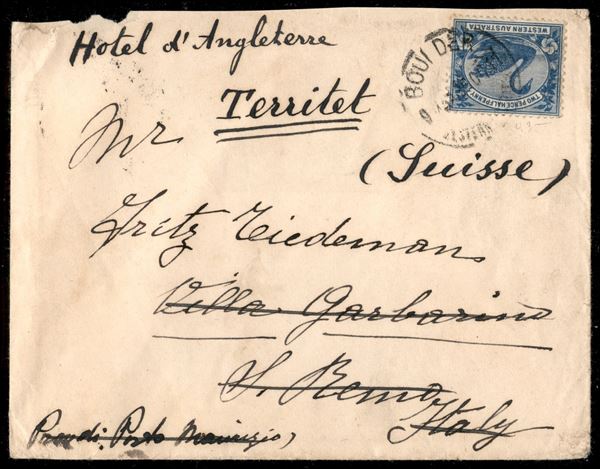 Hotel d'Angleterre
Territet
(Suisse)
Mr
Fritz Tiedeman
Villa Garbarino
S. Remo
Italy
Prov di Porto Maurizio,
WESTERN AUSTRALIA
TWO PENCE HALFPENNY
BOULDER